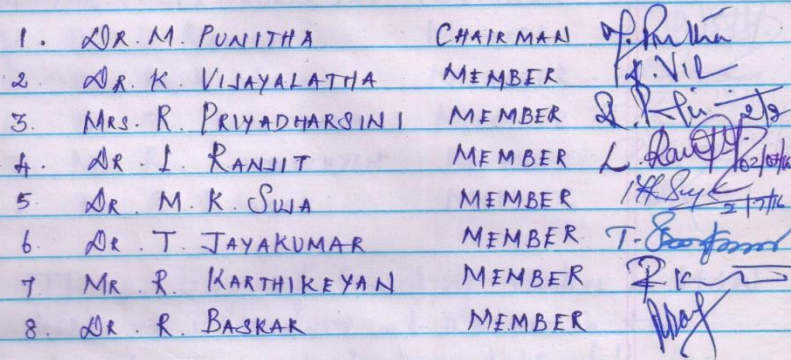 1. DR. M. PUNITHA CHAIRMAN
2 DR. K. VIJAYALATHA MEMBER
3. MRS. R. PRIYADHARSINI MEMBER
4. DR L RANJIT MEMBER
5 DR. M. K. SUJA MEMBER
6 DR. T. JAYAKUMAR MEMBER
7 MR R. KARTHIKEYAN MEMBER
8. DR. R. BASKAR MEMBER